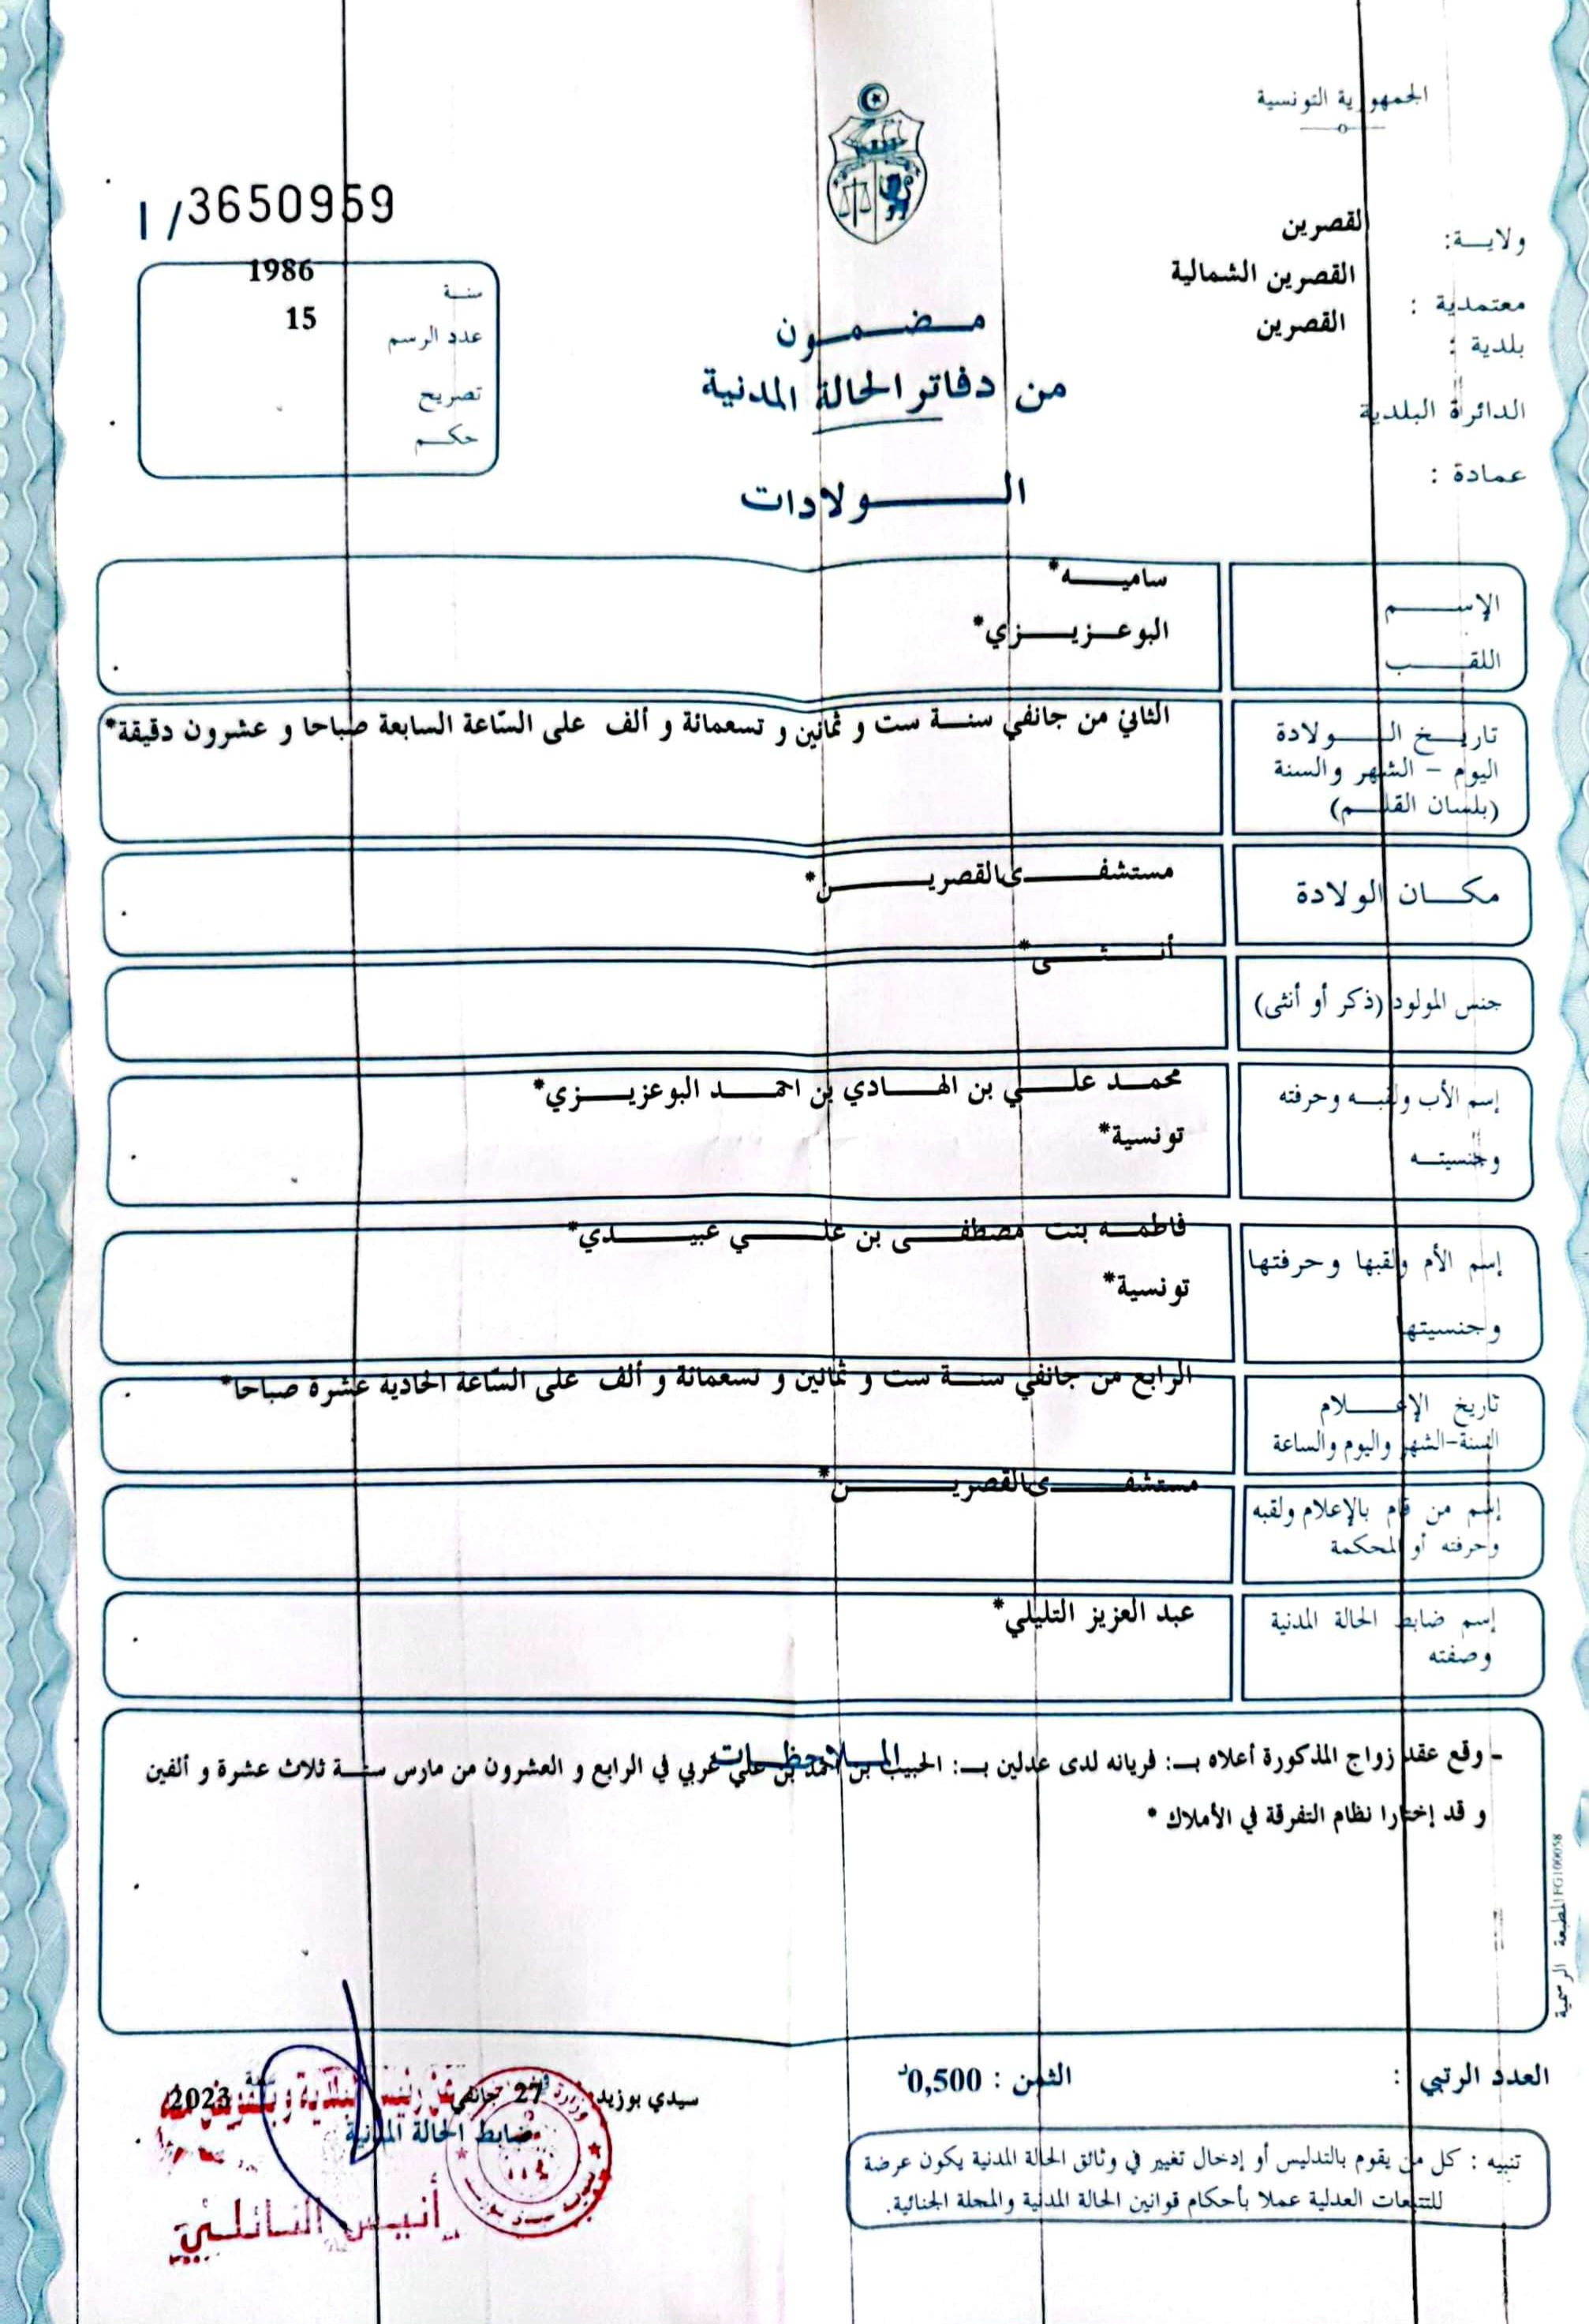 الجمهورية التونسية
ولايـــة: لقصرين
معتمدية : القصرين الشمالية
بلدية : القصرين
الدائرة البلدية
عمادة :
I/3650959
سنـة 1986
عدد الرسم 15
تصريح
حكــم
مـضـمـون
من دفاتر الحالة المدنية
الــولادات
الإســـم ساميـــه*
اللقـــب البوعـزيـــزي*
تاريـخ الـــولادة
اليوم – الشهر والسنة
(بلسان القلـم)
الثاني من جانفي سنـة ست و ثمانين و تسعمائة و ألف على السّاعة السابعة صباحا و عشرون دقيقة*
مكـــان الولادة مستشفـــى القصريـــن*
جنس المولود (ذكر أو أنثى) أنـــثـــى*
إسم الأب ولقبـه وحرفته
وجنسيتـه
محمـد علـــي بن الهـــادي بن احمـــد البوعزيـــزي*
تونسية*
إسم الأم ولقبها وحرفتها
وجنسيتها
فاطمـه بنت مصطفـــى بن علـــي عبيـــدي*
تونسية*
تاريخ الإعـــلام
السنة-الشهر واليوم والساعة
الرابع من جانفي سنـة ست و ثمانين و تسعمائة و ألف على السّاعة الحادية عشرة صباحا*
إسم من قام بالإعلام ولقبه
وحرفته أو المحكمة
مستشفـــى القصريـــن*
إسم ضابط الحالة المدنية
وصفته
عبد العزيز التليلي*
المــلاحظــات
- وقع عقد زواج المذكورة أعلاه بـ: فريانه لدى عدلين بـ: الحبيب بن احمد بن علي غربي في الرابع و العشرون من مارس سنـة ثلاث عشرة و ألفين
و قد إختارا نظام التفرقة في الأملاك *
المطبعة الرسمية FG100058
العدد الرتبي :
الثمن : 0,500د
سيدي بوزيد في 27 جانفي سنة 2023
ضابط الحالة المدنية
أنيس النائلي
تنبيه : كل من يقوم بالتدليس أو إدخال تغيير في وثائق الحالة المدنية يكون عرضة
للتتبعات العدلية عملا بأحكام قوانين الحالة المدنية والمجلة الجنائية.